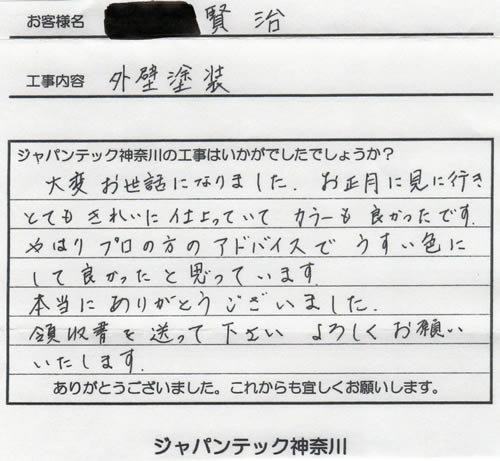 お客様名 賢治
工事内容 外壁塗装
ジャパンテック神奈川の工事はいかがでしたでしょうか？
大変お世話になりました. お正月に見に行き
とてもきれいに仕上っていて カラーも良かったです.
やはりプロの方のアドバイスで うすい色に
して良かったと思っています.
本当にありがとうございました.
領収書を送って下さい よろしくお願い
いたします.
ありがとうございました。これからも宜しくお願いします。
ジャパンテック神奈川